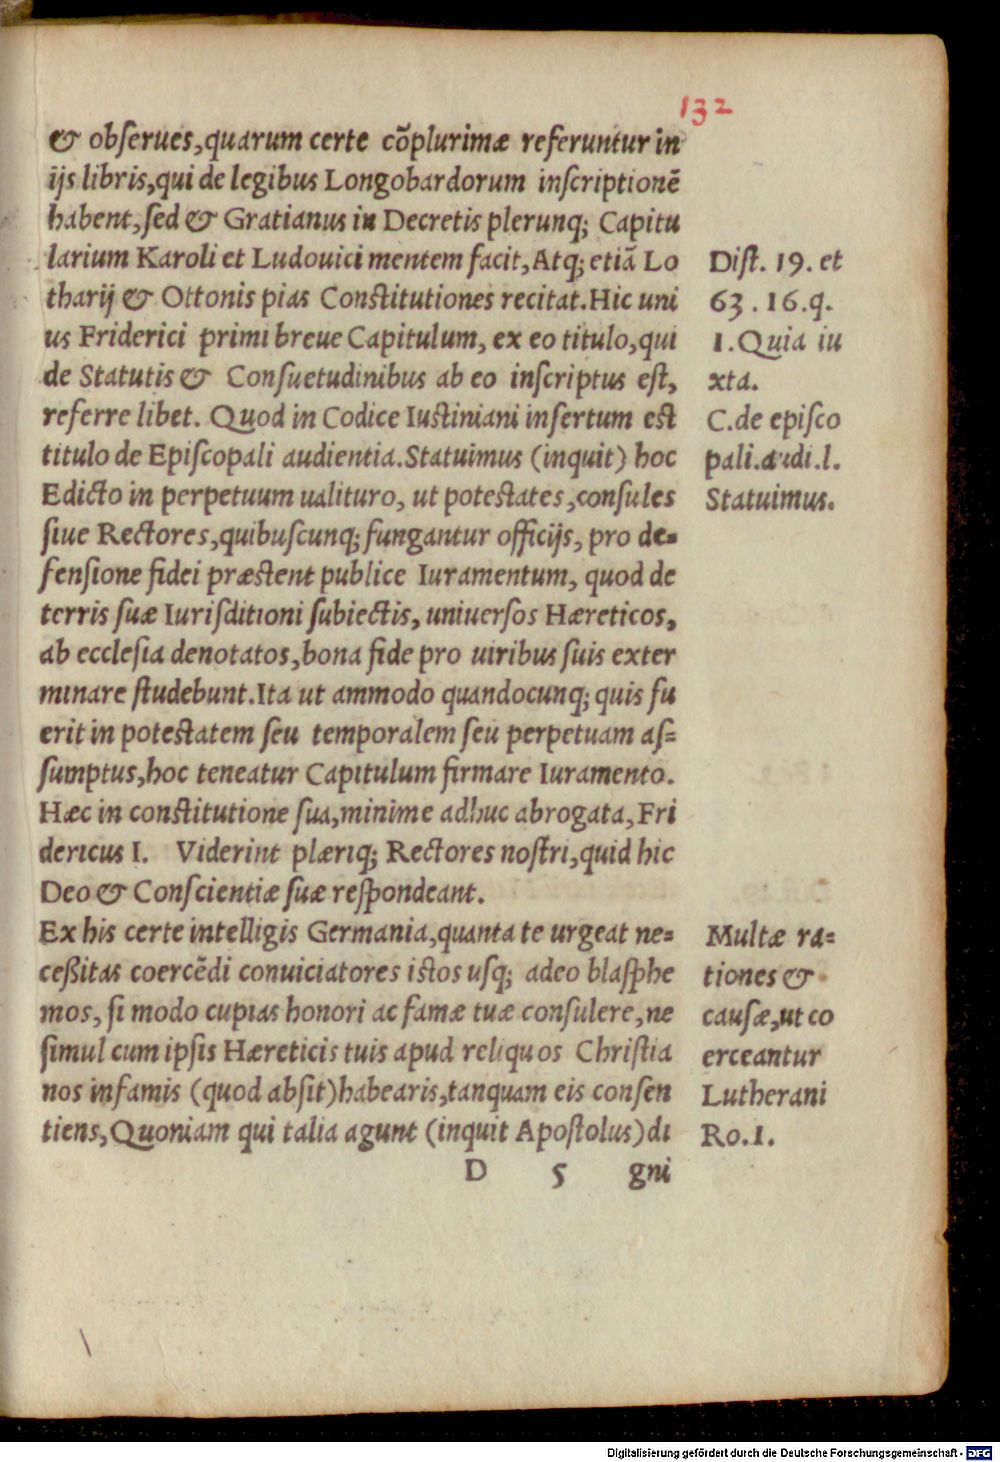 132
& obſerues,quarum certe cõplurimæ referuntur in
ijs libris,qui de legibus Longobardorum inſcriptionẽ
habent,ſed & Gratianus in Decretis plerunq; Capitu
larium Karoli et Ludouici mentem facit,Atq; etiã Lo
tharij & Ottonis pias Conſtitutiones recitat.Hic uni
us Friderici primi breue Capitulum, ex eo titulo,qui
de Statutis & Conſuetudinibus ab eo inſcriptus eſt,
referre libet. Quod in Codice Iuſtiniani inſertum eſt
titulo de Epiſcopali audientia.Statuimus (inquit) hoc
Edicto in perpetuum ualituro, ut poteſtates,conſules
ſiue Rectores,quibuſcunq; fungantur officijs, pro de=
fenſione fidei præſtent publice Iuramentum, quod de
terris ſuæ Iuriſditioni ſubiectis, uniuerſos Hæreticos,
ab eccleſia denotatos,bona fide pro uiribus ſuis exter
minare ſtudebunt.Ita ut ammodo quandocunq; quis fu
erit in poteſtatem ſeu temporalem ſeu perpetuam aſ=
ſumptus,hoc teneatur Capitulum firmare Iuramento.
Hæc in conſtitutione ſua,minime adhuc abrogata, Fri
dericus I. Viderint plæriq; Rectores noſtri,quid hic
Deo & Conſcientiæ ſuæ reſpondeant.
Ex his certe intelligis Germania,quanta te urgeat ne=
ceßitas coercẽdi conuiciatores iſtos uſq; adeo blaſphe
mos, ſi modo cupias honori ac famæ tuæ conſulere, ne
ſimul cum ipſis Hæreticis tuis apud reliquos Chriſtia
nos infamis (quod abſit)habearis,tanquam eis conſen
tiens,Quoniam qui talia agunt (inquit Apoſtolus)di
D 5 gni
Diſt. 19. et
63 . 16.q.
1.Quia iu
xta.
C.de epiſco
pali.audi.l.
Statuimus.
Multæ ra=
tiones &
cauſæ,ut co
erceantur
Lutherani
Ro.1.
Digitalisierung gefördert durch die Deutsche Forschungsgemeinschaft - DFG